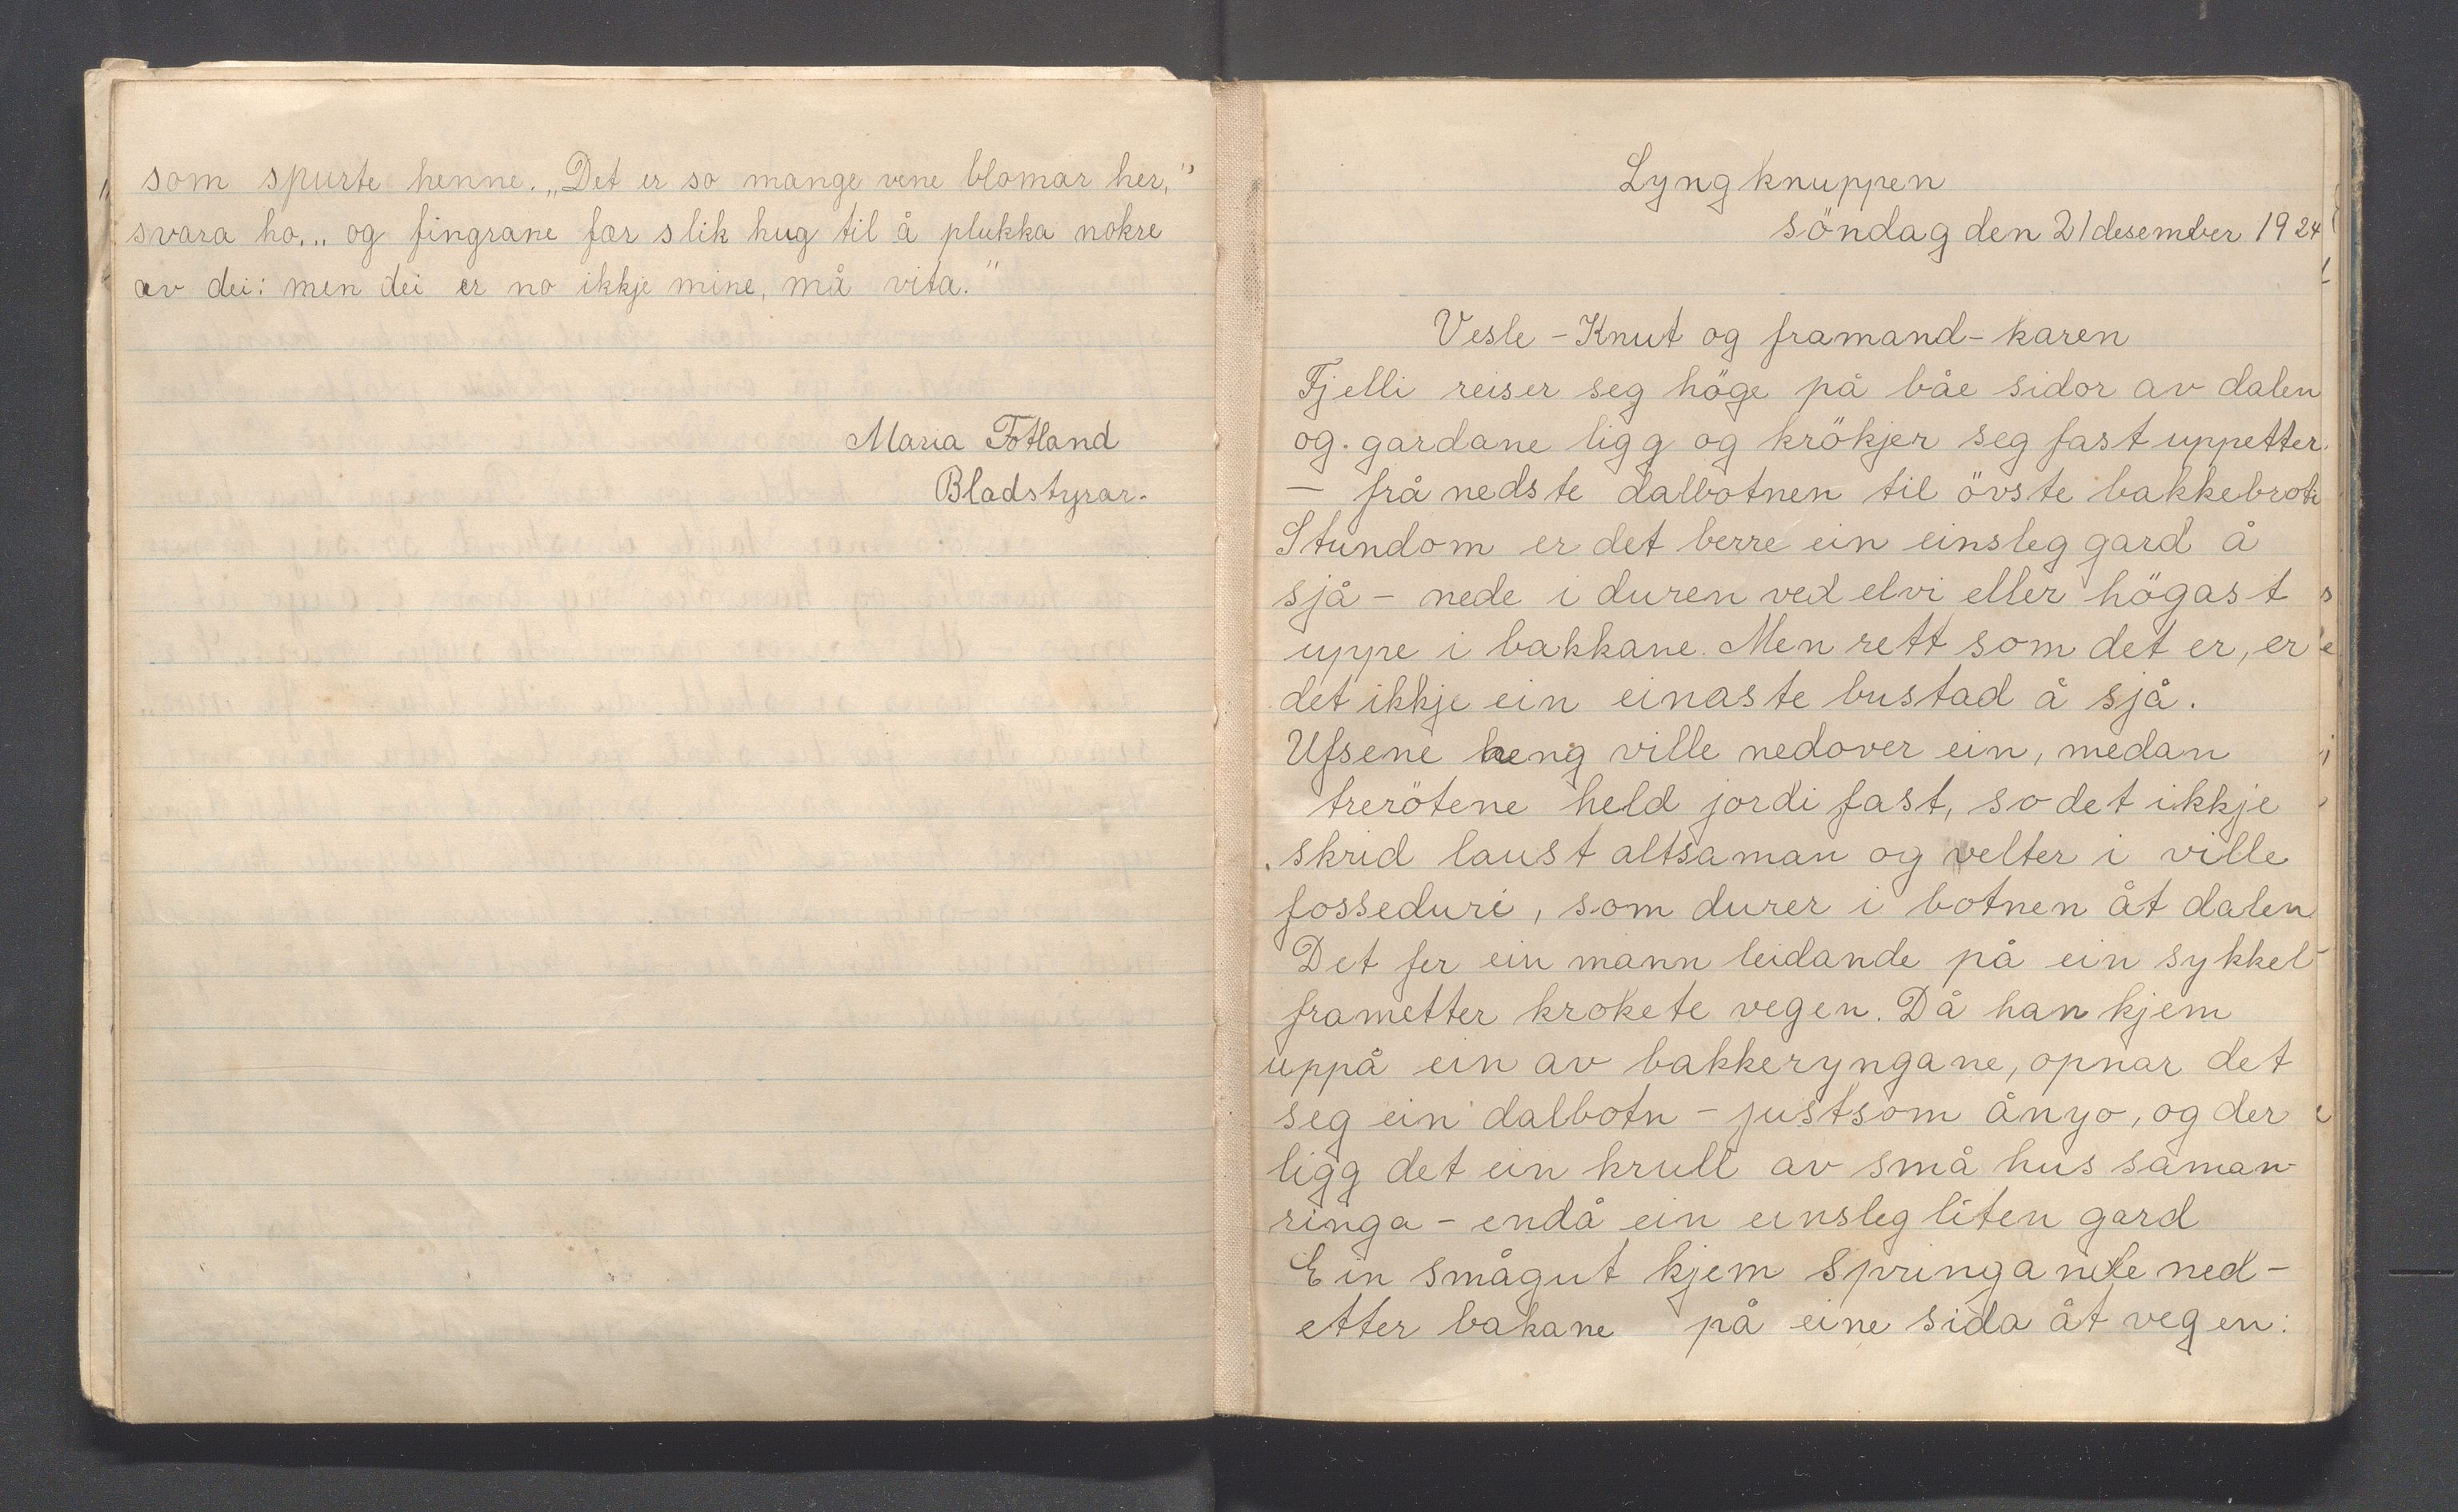 som spurte henne. „Det er so mange vene blomar her,"
svara ho. „ og fingrane fær slik hug til å plukka nokre
av dei: men dei er no ikkje mine, må vita."
Maria Fotland
Bladstyrar.
Lyngknuppen
söndag den 21 desember 1924
Vesle-Knut og framand-karen
Fjelli reiser seg höge på båe sidor av dalen
og gardane ligg og krökjer seg fast uppetter.
– frå nedste dalbotnen til övste bakkebrot
Stundom er det berre ein einsleg gard å
sjå – nede i duren ved elvi eller högast
uppe i bakkane. Men rett som det er, er
det ikkje ein einaste bustad å sjå.
Ufsene heng ville nedover ein, medan
trerötene held jordi fast, so det ikkje
skrid laust altsaman og velter i ville
fosseduri, som durer i botnen åt dalen
Det fer ein mann leidande på ein sykkel
frametter krokete vegen. Då han kjem
uppå ein av bakkeryngane, opnar det
seg ein dalbotn – justsom ånyo, og der
ligg det ein krull av små hus saman-
ringa – endå ein einsleg liten gard
Ein smågut kjem springande ned-
etter bakane på eine sida åt vegen: